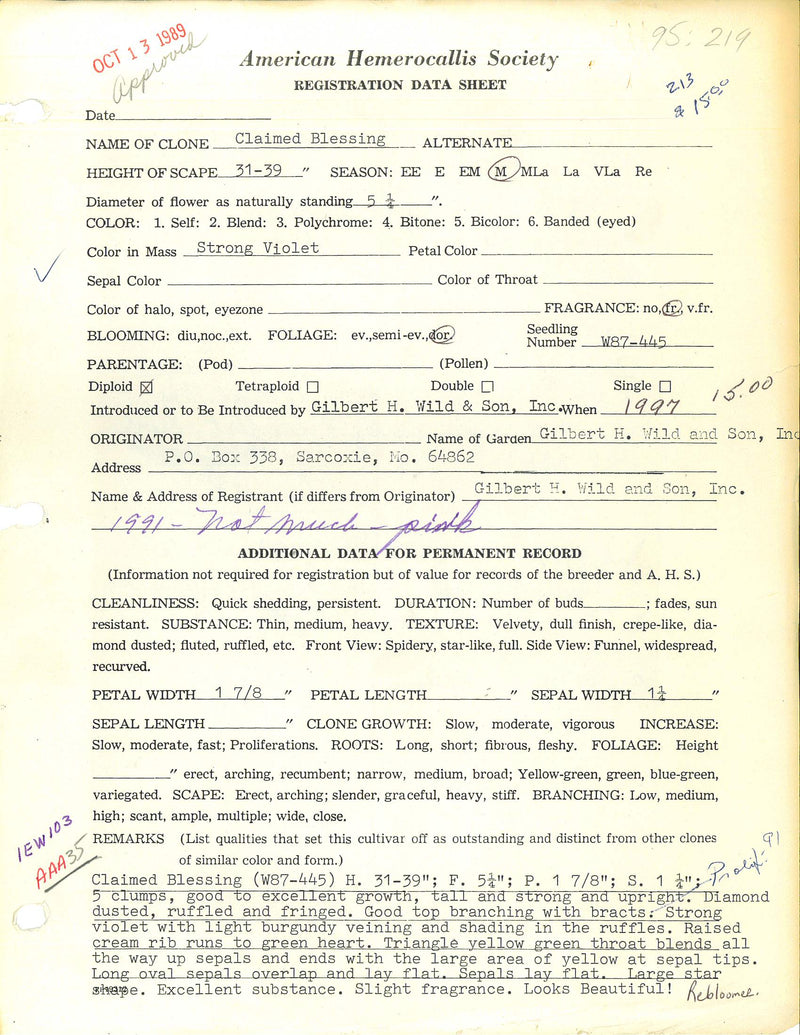 OCT 13 1989
Approved
95: 219
213
& 15.00
American Hemerocallis Society
REGISTRATION DATA SHEET
Date
NAME OF CLONE Claimed Blessing ALTERNATE
HEIGHT OF SCAPE 31-39 " SEASON: EE E EM M MLa La VLa Re
Diameter of flower as naturally standing 5 ¼ ".
COLOR: 1. Self: 2. Blend: 3. Polychrome: 4. Bitone: 5. Bicolor: 6. Banded (eyed)
Color in Mass Strong Violet Petal Color
Sepal Color Color of Throat
Color of halo, spot, eyezone FRAGRANCE: no, fr., v.fr.
BLOOMING: diu,noc.,ext. FOLIAGE: ev.,semi-ev., dor. Seedling Number W87-445
PARENTAGE: (Pod) (Pollen)
Diploid ☒ Tetraploid ☐ Double ☐ Single ☐
15.00
Introduced or to Be Introduced by Gilbert H. Wild & Son, Inc. When 1997
ORIGINATOR Name of Garden Gilbert H. Wild and Son, Inc
Address P.O. Box 338, Sarcoxie, Mo. 64862
Name & Address of Registrant (if differs from Originator) Gilbert H. Wild and Son, Inc.
1991 - Not much - pink
ADDITIONAL DATA FOR PERMANENT RECORD
(Information not required for registration but of value for records of the breeder and A. H. S.)
CLEANLINESS: Quick shedding, persistent. DURATION: Number of buds ; fades, sun
resistant. SUBSTANCE: Thin, medium, heavy. TEXTURE: Velvety, dull finish, crepe-like, dia-
mond dusted; fluted, ruffled, etc. Front View: Spidery, star-like, full. Side View: Funnel, widespread,
recurved.
PETAL WIDTH 1 7/8 " PETAL LENGTH " SEPAL WIDTH 1¼ "
SEPAL LENGTH " CLONE GROWTH: Slow, moderate, vigorous INCREASE:
Slow, moderate, fast; Proliferations. ROOTS: Long, short; fibrous, fleshy. FOLIAGE: Height
" erect, arching, recumbent; narrow, medium, broad; Yellow-green, green, blue-green,
variegated. SCAPE: Erect, arching; slender, graceful, heavy, stiff. BRANCHING: Low, medium,
high; scant, ample, multiple; wide, close.
1EW103
AAA35
REMARKS (List qualities that set this cultivar off as outstanding and distinct from other clones
of similar color and form.)
91
Prolif.
Claimed Blessing (W87-445) H. 31-39"; F. 5¼"; P. 1 7/8"; S. 1 ¼";
5 clumps, good to excellent growth, tall and strong and upright. Diamond
dusted, ruffled and fringed. Good top branching with bracts. Strong
violet with light burgundy veining and shading in the ruffles. Raised
cream rib runs to green heart. Triangle yellow green throat blends all
the way up sepals and ends with the large area of yellow at sepal tips.
Long oval sepals overlap and lay flat. Sepals lay flat. Large star
shape. Excellent substance. Slight fragrance. Looks Beautiful! Rebloomer.